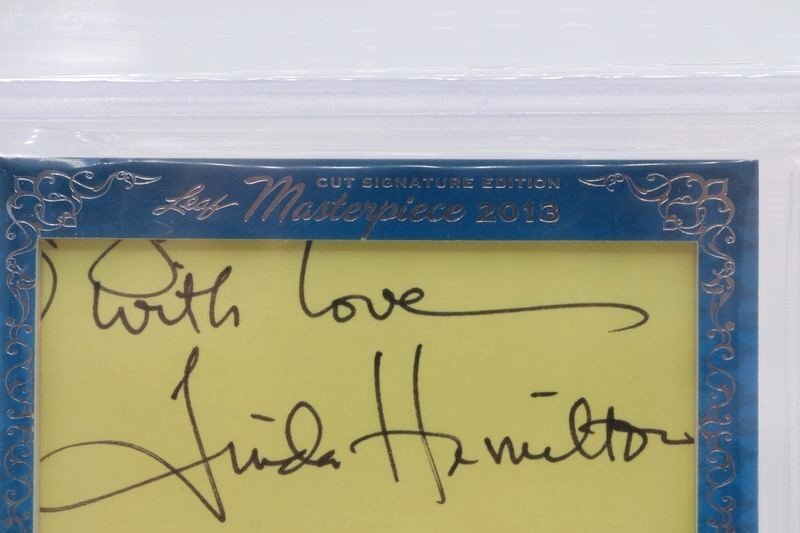 CUT SIGNATURE EDITION
Leaf Masterpiece 2013
With Love
Linda Hamilton